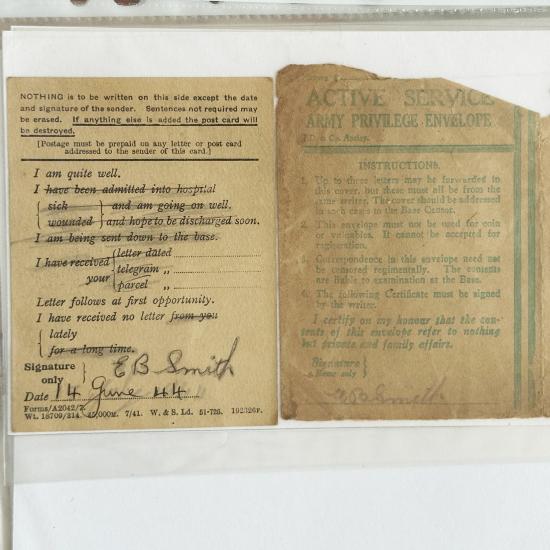 NOTHING is to be written on this side except the date
and signature of the sender. Sentences not required may
be erased. If anything else is added the post card will
be destroyed.
[Postage must be prepaid on any letter or post card
addressed to the sender of this card.]
I am quite well.
I have been admitted into hospital
sick and am going on well.
wounded and hope to be discharged soon.
I am being sent down to the base.
I have received your
letter dated
telegram „
parcel „
Letter follows at first opportunity.
I have received no letter from you
lately
for a long time.
Signature only
E B Smith
Date 14 June 44
Forms/A2042/7.
Wt. 18709/214. 7/41. W. & S. Ld. 51-726.
ACTIVE SERVICE
ARMY PRIVILEGE ENVELOPE
INSTRUCTIONS.
1. Up to three letters may be forwarded in
this cover, but these must all be from the
same writer. The cover should be addressed
in such cases to the Base Censor.
2. This envelope must not be used for coin
or valuables. It cannot be accepted for
registration.
3. Correspondence in this envelope need not
be censored regimentally. The contents
are liable to examination at the Base.
The following Certificate must be
signed by the writer.
I certify on my honour that the con-
tents of this envelope refer to nothing
but private and family affairs.
Signature
Name only
E B Smith